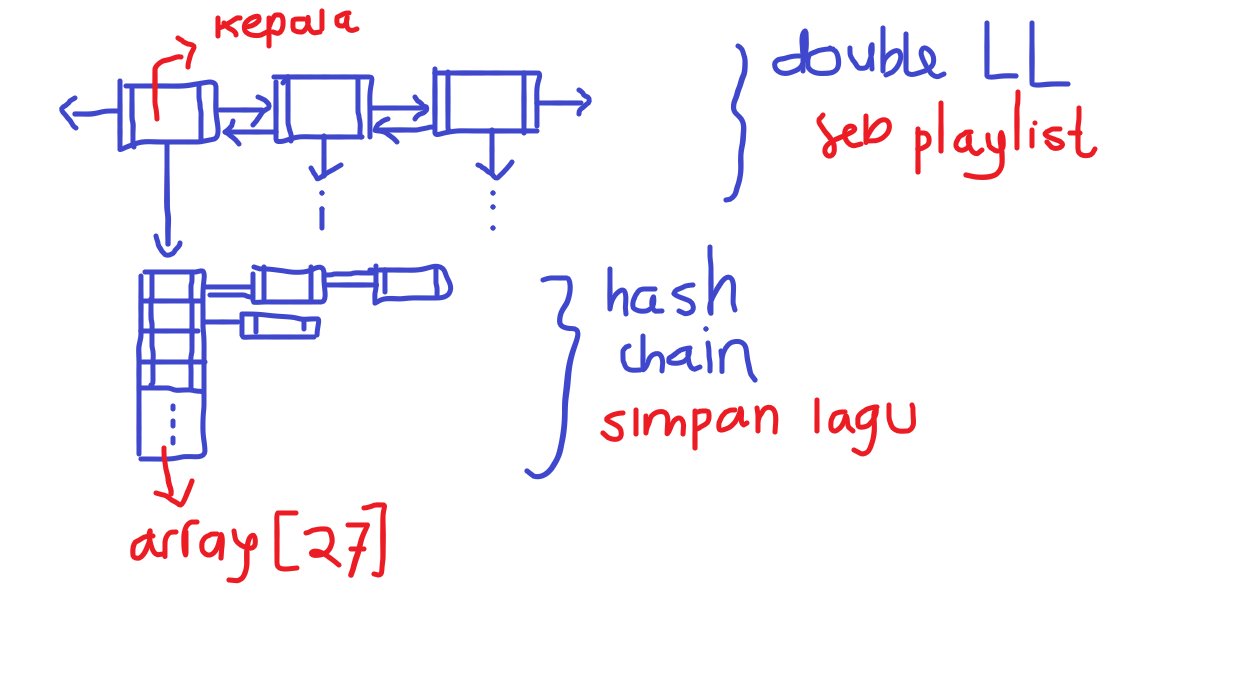 kepala
double LL
seb playlist
hash
chain
simpan lagu
array [27]